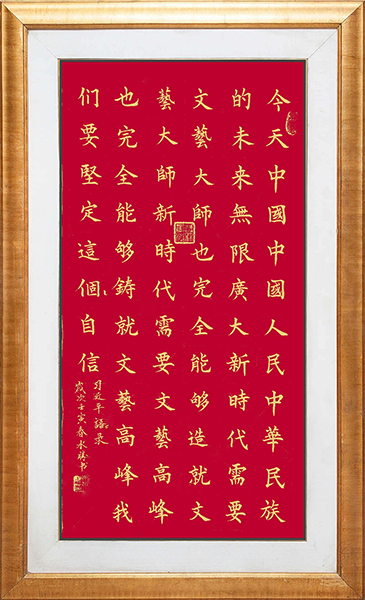 今天中國中國人民中華民族
的未来無限廣大新時代需要
文藝大師也完全能够造就文
藝大師新時代需要文藝高峰
也完全能够鑄就文藝高峰我
们要堅定這個自信
习近平語录
歲次壬寅春书